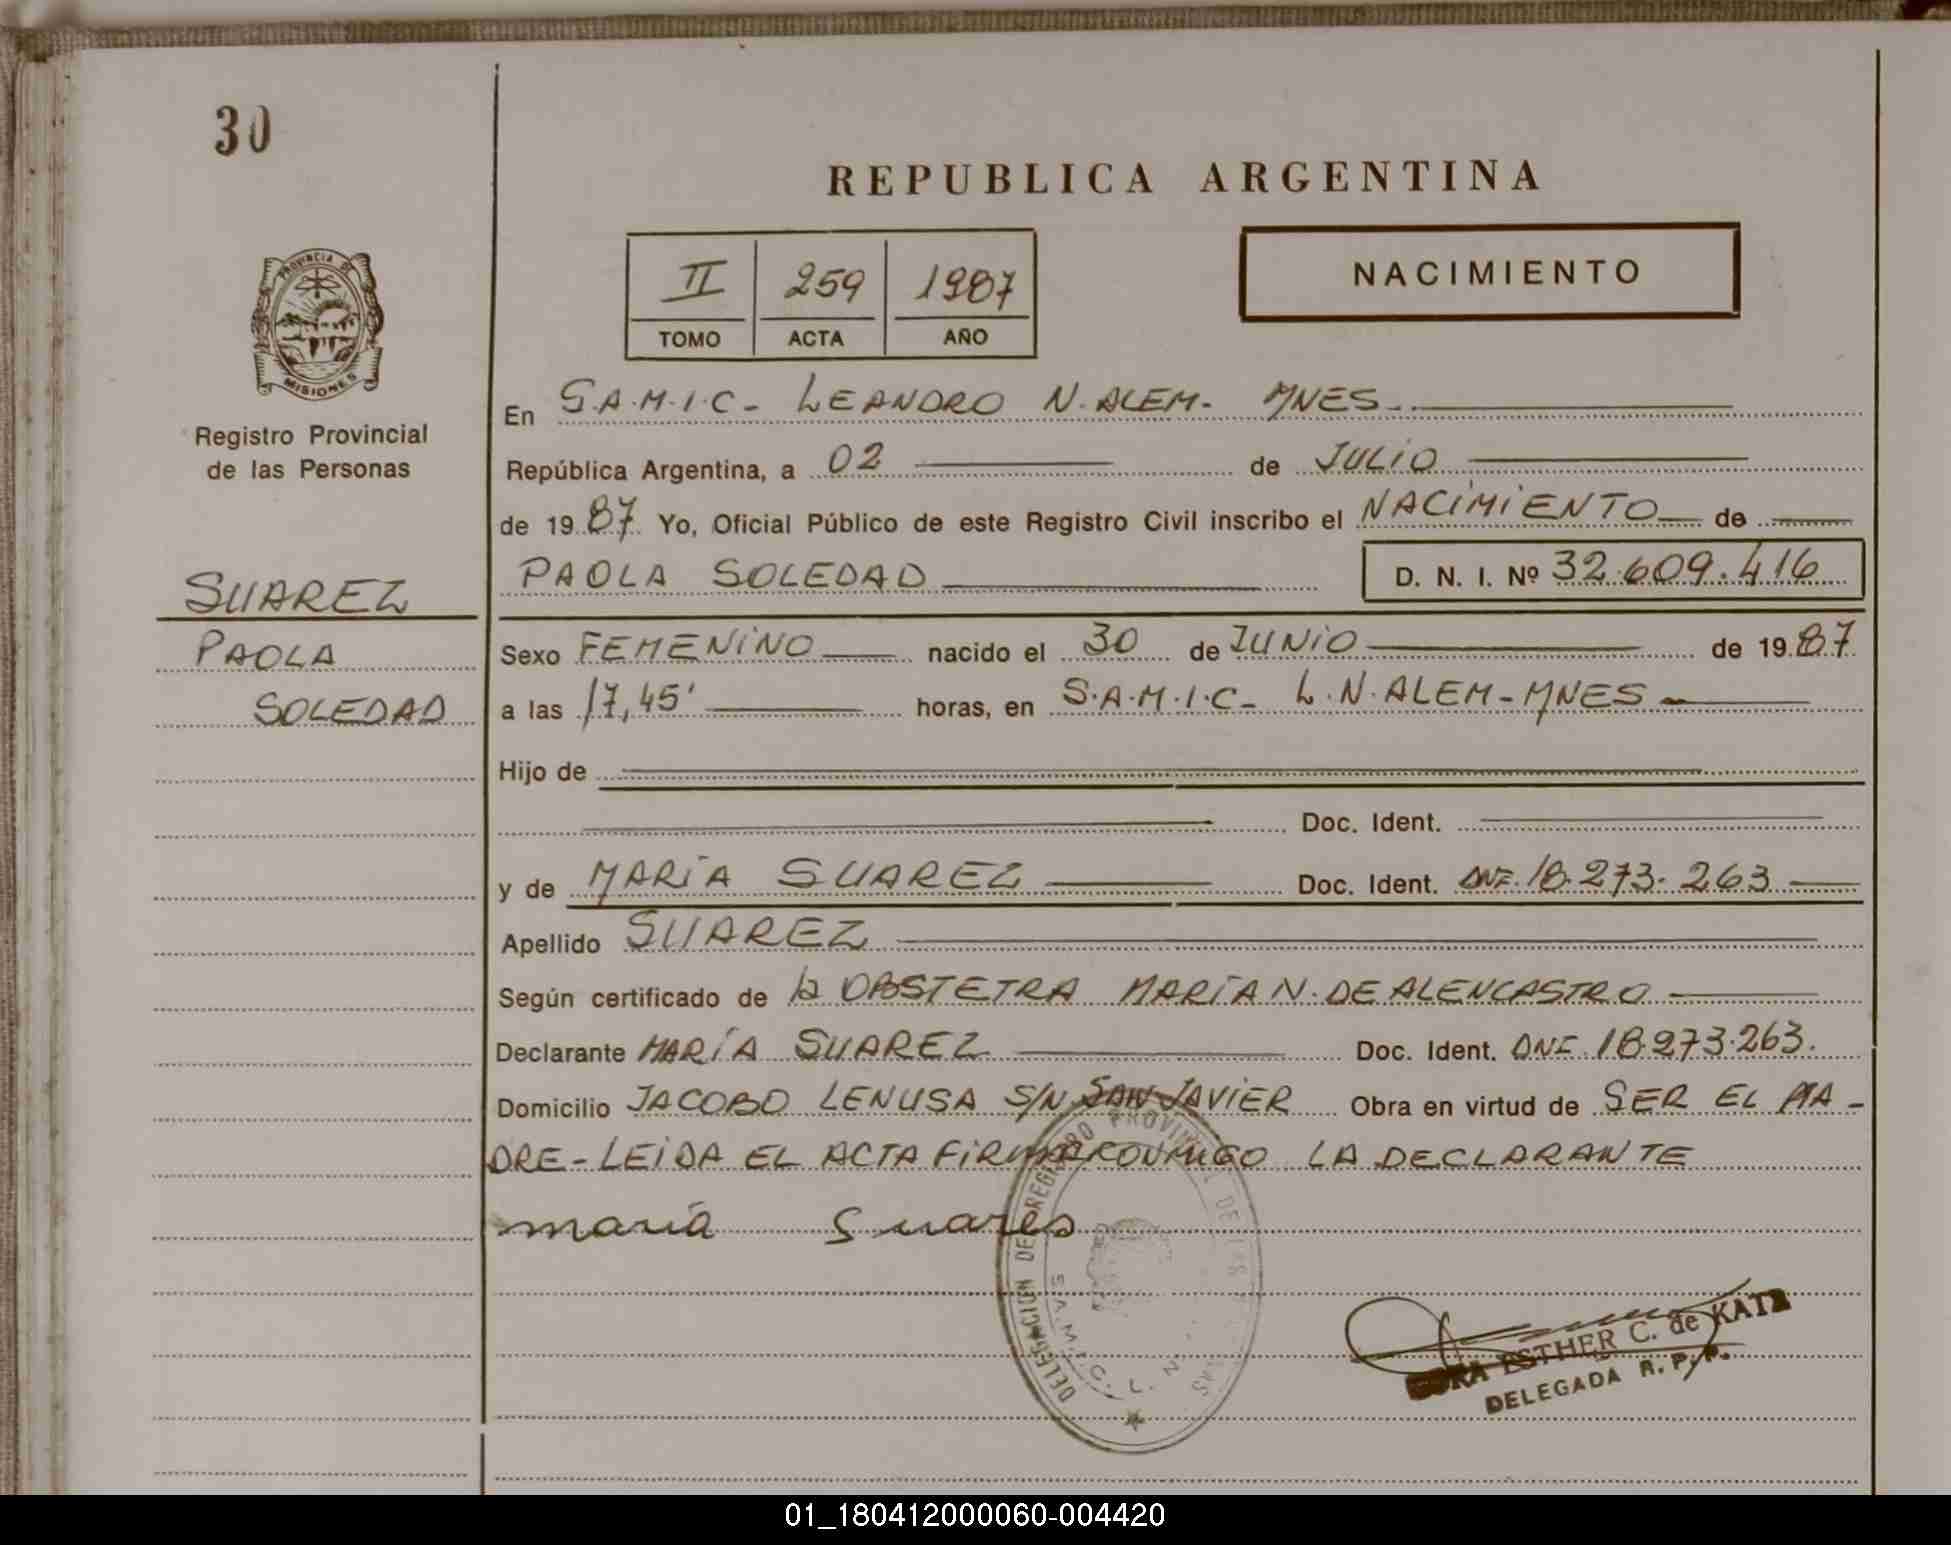 30
REPUBLICA ARGENTINA
II 259 1987
TOMO ACTA AÑO
NACIMIENTO
PROVINCIA DE
MISIONES
Registro Provincial
de las Personas
SUAREZ
PAOLA
SOLEDAD
En S.A.M.I.C- LEANDRO N. ALEM- MNES-
República Argentina, a 02 de JULIO
de 19 87 Yo, Oficial Público de este Registro Civil inscribo el NACIMIENTO de
PAOLA SOLEDAD D. N. I. Nº 32.609.416
Sexo FEMENINO nacido el 30 de JUNIO de 19 87
a las 17,45' horas, en S.A.M.I.C- L.N.ALEM-MNES-
Hijo de
Doc. Ident.
y de MARÍA SUAREZ Doc. Ident. DNI. 18.273.263
Apellido SUAREZ
Según certificado de la OBSTETRA MARÍA N. DE ALENCASTRO
Declarante MARÍA SUAREZ Doc. Ident. DNI 18.273.263.
Domicilio JACOBO LENUSA S/N SAN JAVIER Obra en virtud de SER EL MA-
DRE-LEIDA EL ACTA FIRMA CONMIGO LA DECLARANTE
maría Suares
DELEGACION DEL REGISTRO PROVINCIAL DE LAS
S.A.M.I.C. L. N.
ESTHER C. de KATZ
DELEGADA R. P. P.
01_180412000060-004420